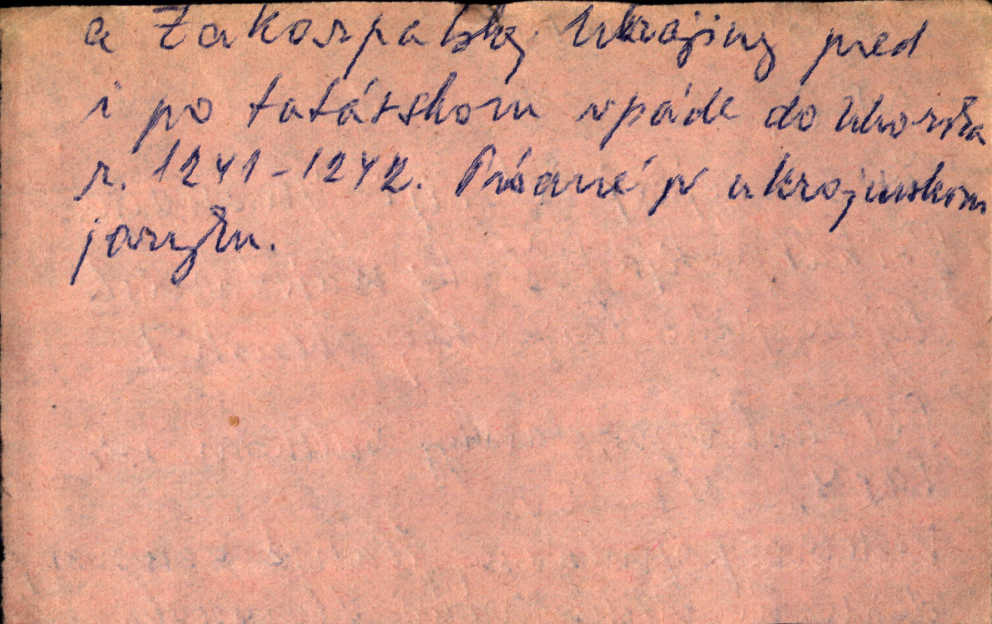 a Zakarpatskej Ukrajiny pred
i po tatárskom vpáde do Uhorska
r. 1241-1242. Písané v ukrajinskom
jazyku.